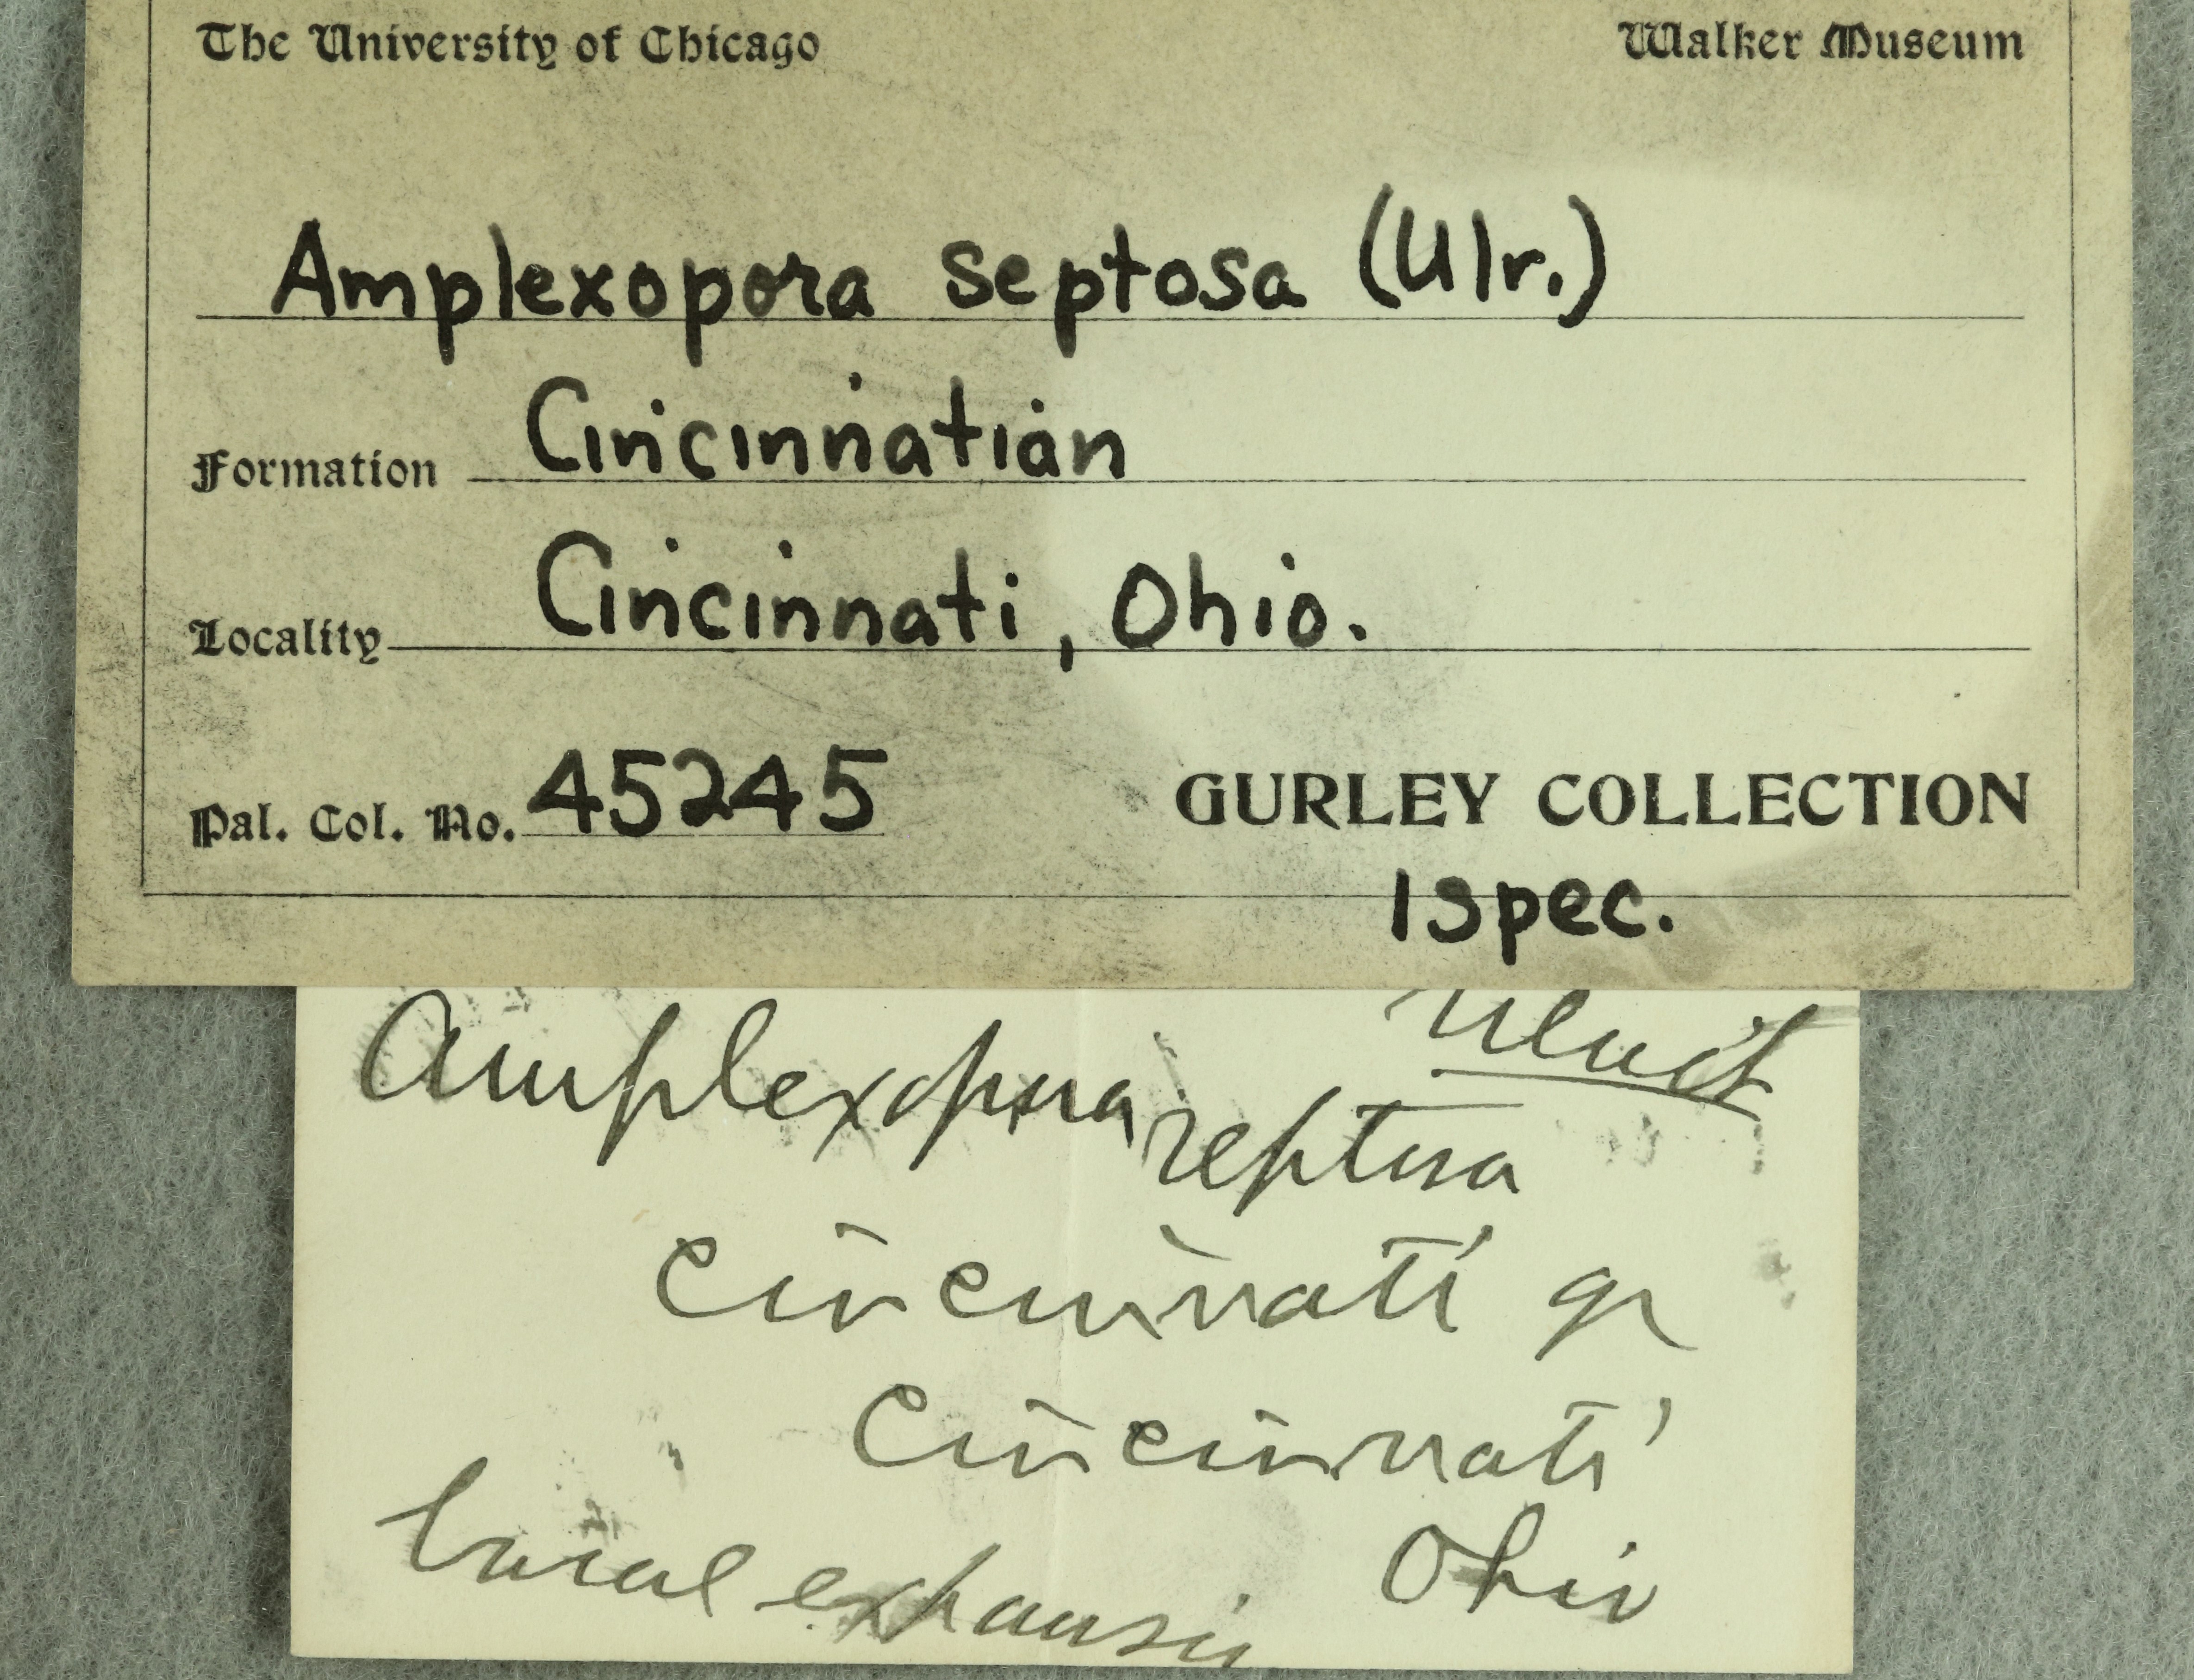 The University of Chicago Walker Museum
Amplexopora septosa (Ulr.)
Formation Cincinnatian
Locality Cincinnati, Ohio.
Pal. Col. No. 45245 GURLEY COLLECTION
1 spec.
Amplexopora
septosa
Cincinnati gr
Cincinnati
Ohio
basal expansio